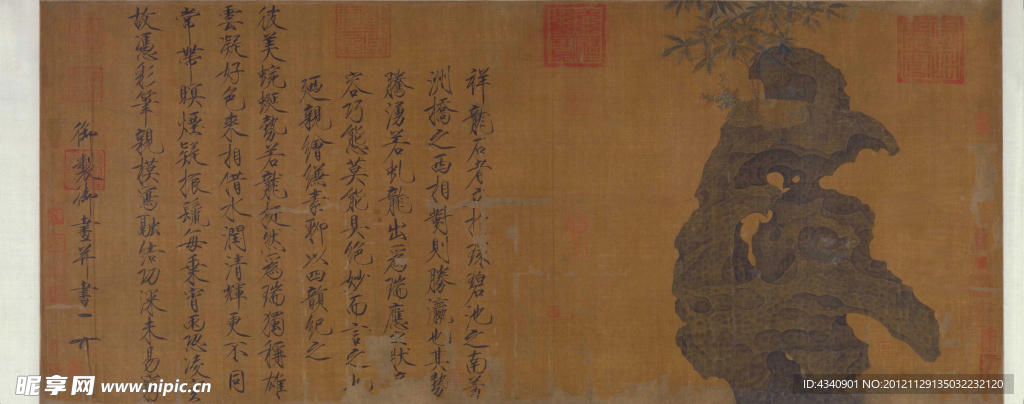 祥龍石者立於環碧池之南芳
洲橋之西相對則勝瀛也其勢
騰湧若虬龍出為瑞應之狀奇
容巧態莫能具絕妙而言之也
廼親繪縑素聊以四韻紀之
彼美蜿蜒勢若龍挺然為瑞獨稱雄
雲凝好色來相借水潤清輝更不同
常帶暝煙疑振鬣每乘宵雨恐凌空
故憑彩筆親模寫融結功深未易窮
御製御畫并書
昵享网 www.nipic.cn
ID:4340901 NO:20121129135032232120